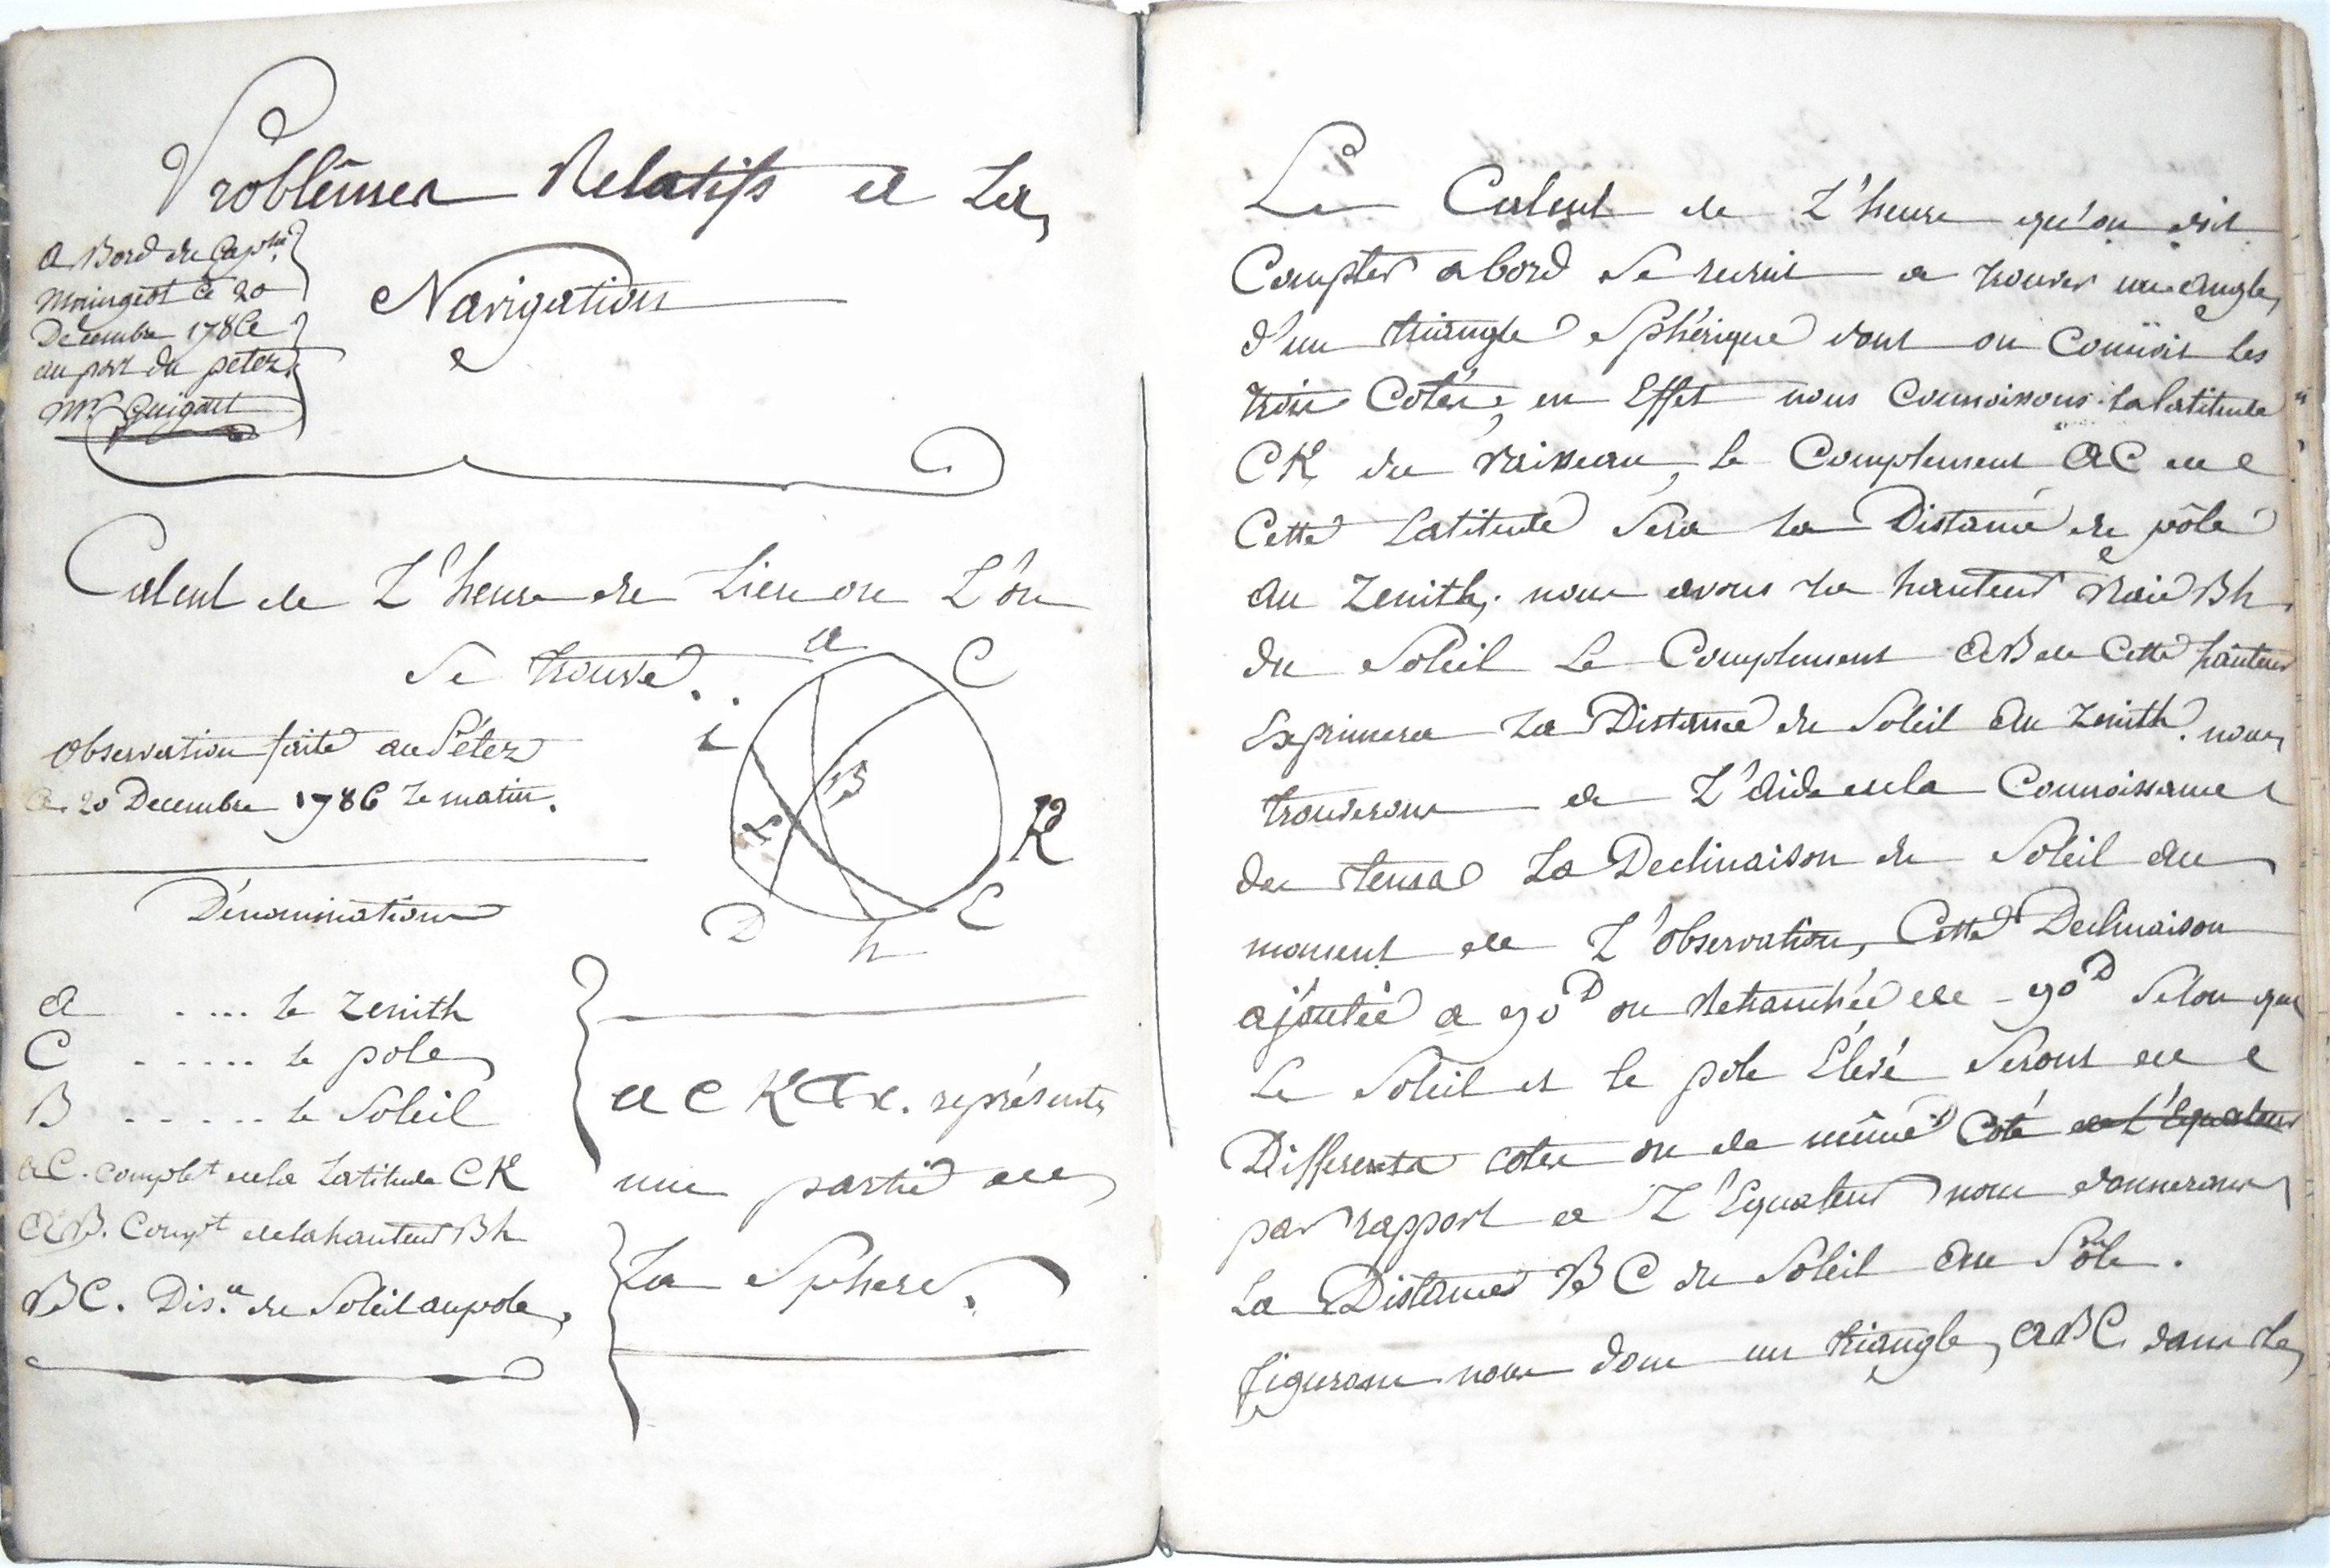 Problêmes Relatifs a La
Navigation
a Bord du Cap.ne
Maingeot ce 20
Decembre 1786
au port du petez
Mr. Guigart
Calcul de L'heure de Lieu ou L'on
Se trouve.
Observation faite au Pétez
Ce 20 Decembre 1786 Le matin.
a
C
i
B
K
D
h
E
Dénominations
A ..... le Zenith
C ..... le pole
B ..... le Soleil
AC. complt de la Latitude CK
AB. Compt de la hauteur Bh
BC. Dis.ce du Soleil au pole.
représente
une partie de
La Sphere.
Le Calcul de L'heure qu'on doit
Compter abord Se reduit a trouver un angle
d'un triangle Sphérique dont on Connoit les
trois Cotés, en Effet nous Connoissons la latitude
CK du Vaisseau, le Complement AC de
Cette Latitude Sera la Distance du pôle
au Zenith, nous avons la hauteur vraie Bh
du Soleil Le Complement AB de Cette hauteur
Exprimera La Distance du Soleil au Zenith. nous
trouverons a L'aide de la Connoissance
des tems La Declinaison du Soleil au
moment de L'observation, Cette Declinaison
ajoutée a 90D ou Retranchée de 90D Selon que
Le Soleil et le pole Elevé Seront de
Differents cotés ou de même Coté de L'Equateur
par rapport a L'Equateur nous donnerons
La Distance BC du Soleil au Pôle.
figurons nous donc un triangle, ABC dans le